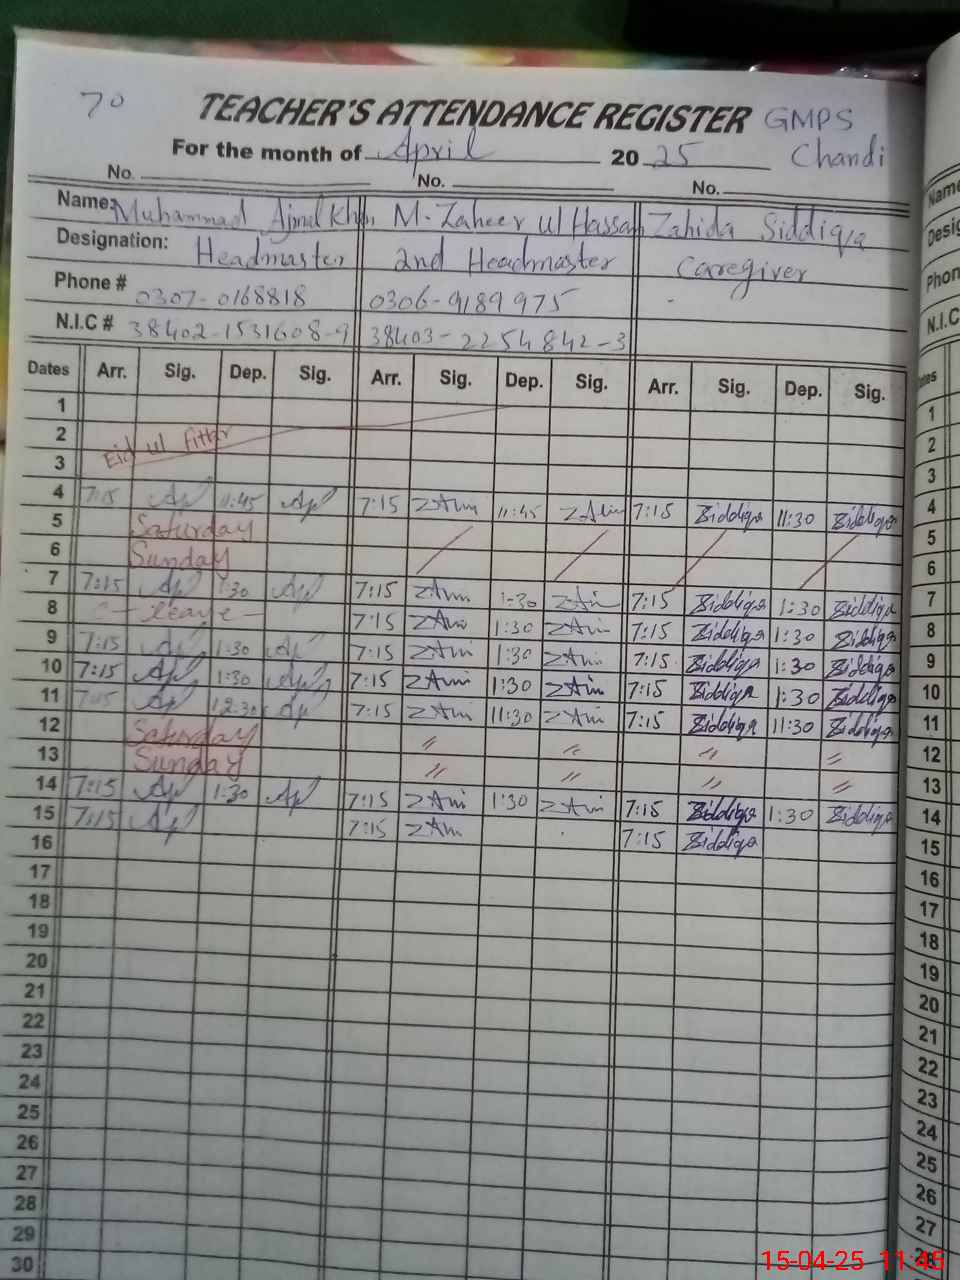 70 TEACHER'S ATTENDANCE REGISTER GMPS
For the month of April 2025 Chandi
No. No. No.
Name: Muhammad Ajmal Khan M. Zaheer ul Hassan Zahida Siddiqa
Designation: Headmaster 2nd Headmaster Caregiver
Phone # 0307-0168818 0306-9189975
N.I.C # 38402-1531608-9 38403-2254842-3
Dates Arr. Sig. Dep. Sig. Arr. Sig. Dep. Sig. Arr. Sig. Dep. Sig.
1 1
2 Eid ul Fitar 2
3 3
4 7:15 11:45 7:15 11:45 7:15 Siddiqa 11:30 Siddiqa 4
5 Saturday 5
6 Sunday 6
7 7:15 1:30 7:15 1:30 7:15 Siddiqa 1:30 Siddiqa 7
8 - Leave - 7:15 1:30 7:15 Siddiqa 1:30 Siddiqa 8
9 7:15 1:30 7:15 1:30 7:15 Siddiqa 1:30 Siddiqa 9
10 7:15 1:30 7:15 1:30 7:15 Siddiqa 1:30 Siddiqa 10
11 7:15 12:30 7:15 11:30 7:15 Siddiqa 11:30 Siddiqa 11
12 Saturday " " " " 12
13 Sunday " " " " 13
14 7:15 1:30 7:15 1:30 7:15 Siddiqa 1:30 Siddiqa 14
15 7:15 7:15 7:15 Siddiqa 15
16 16
17 17
18 18
19 19
20 20
21 21
22 22
23 23
24 24
25 25
26 26
27 27
28
29
30
Name
Desig
Phon
N.I.C
15-04-25 11:45